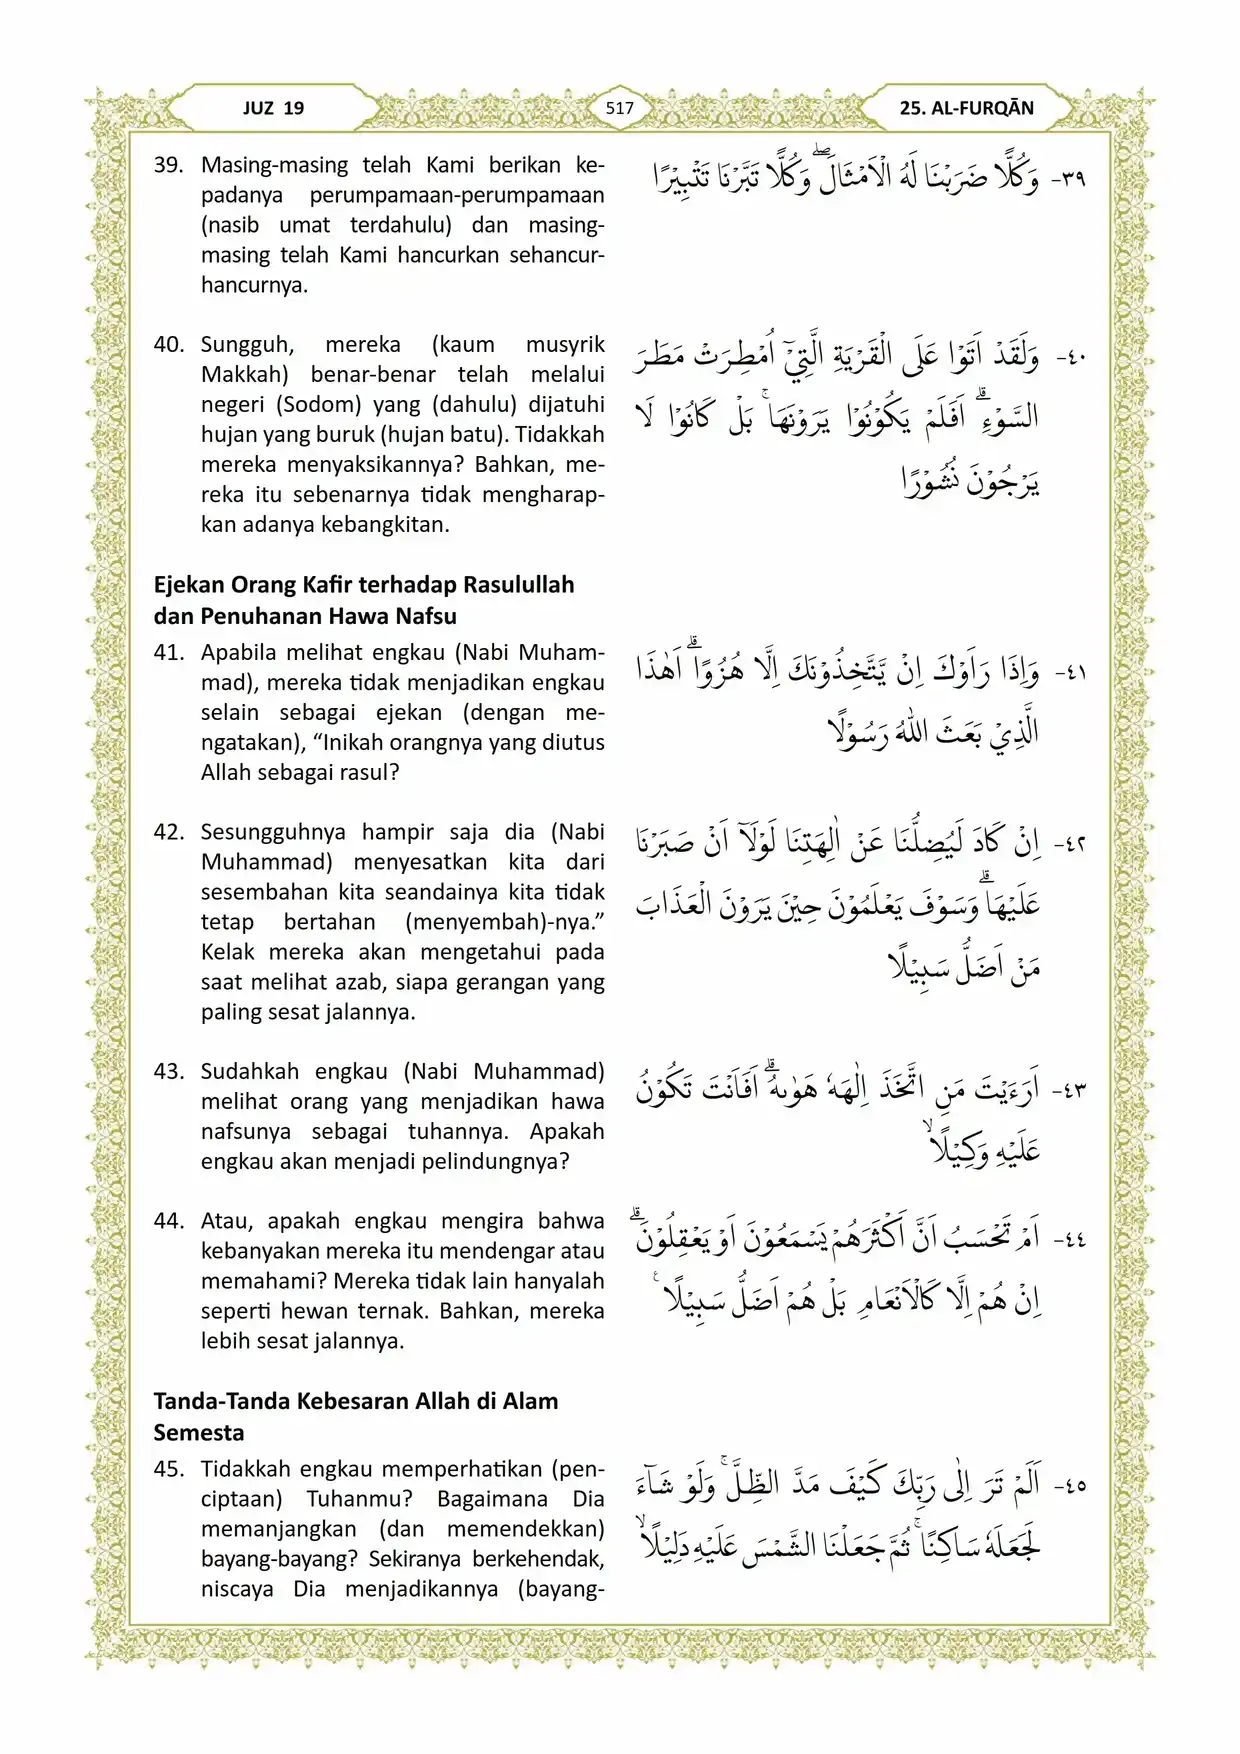 JUZ 19
517
25. AL-FURQĀN
39. Masing-masing telah Kami berikan ke-
padanya perumpamaan-perumpamaan
(nasib umat terdahulu) dan masing-
masing telah Kami hancurkan sehancur-
hancurnya.
وَكُلًّا ضَرَبْنَا لَهُ الْاَمْثَالَۖ وَكُلًّا تَبَّرْنَا تَتْبِيْرًا ٣٩-
40. Sungguh, mereka (kaum musyrik
Makkah) benar-benar telah melalui
negeri (Sodom) yang (dahulu) dijatuhi
hujan yang buruk (hujan batu). Tidakkah
mereka menyaksikannya? Bahkan, me-
reka itu sebenarnya tidak mengharap-
kan adanya kebangkitan.
وَلَقَدْ اَتَوْا عَلَى الْقَرْيَةِ الَّتِيْٓ اُمْطِرَتْ مَطَرَ ٤٠-
السَّوْءِۗ اَفَلَمْ يَكُوْنُوْا يَرَوْنَهَاۚ بَلْ كَانُوْا لَا
يَرْجُوْنَ نُشُوْرًا
Ejekan Orang Kafir terhadap Rasulullah
dan Penuhanan Hawa Nafsu
41. Apabila melihat engkau (Nabi Muham-
mad), mereka tidak menjadikan engkau
selain sebagai ejekan (dengan me-
ngatakan), “Inikah orangnya yang diutus
Allah sebagai rasul?
وَاِذَا رَاَوْكَ اِنْ يَّتَّخِذُوْنَكَ اِلَّا هُزُوًاۗ اَهٰذَا ٤١-
الَّذِيْ بَعَثَ اللّٰهُ رَسُوْلًا
42. Sesungguhnya hampir saja dia (Nabi
Muhammad) menyesatkan kita dari
sesembahan kita seandainya kita tidak
tetap bertahan (menyembah)-nya.”
Kelak mereka akan mengetahui pada
saat melihat azab, siapa gerangan yang
paling sesat jalannya.
اِنْ كَادَ لَيُضِلُّنَا عَنْ اٰلِهَتِنَا لَوْلَآ اَنْ صَبَرْنَا ٤٢-
عَلَيْهَاۗ وَسَوْفَ يَعْلَمُوْنَ حِيْنَ يَرَوْنَ الْعَذَابَ
مَنْ اَضَلُّ سَبِيْلًا
43. Sudahkah engkau (Nabi Muhammad)
melihat orang yang menjadikan hawa
nafsunya sebagai tuhannya. Apakah
engkau akan menjadi pelindungnya?
اَرَءَيْتَ مَنِ اتَّخَذَ اِلٰهَهٗ هَوٰىهُۗ اَفَاَنْتَ تَكُوْنُ ٤٣-
عَلَيْهِ وَكِيْلًاۙ
44. Atau, apakah engkau mengira bahwa
kebanyakan mereka itu mendengar atau
memahami? Mereka tidak lain hanyalah
seperti hewan ternak. Bahkan, mereka
lebih sesat jalannya.
اَمْ تَحْسَبُ اَنَّ اَكْثَرَهُمْ يَسْمَعُوْنَ اَوْ يَعْقِلُوْنَۗ ٤٤-
اِنْ هُمْ اِلَّا كَالْاَنْعَامِ بَلْ هُمْ اَضَلُّ سَبِيْلًا ࣖ
Tanda-Tanda Kebesaran Allah di Alam
Semesta
45. Tidakkah engkau memperhatikan (pen-
ciptaan) Tuhanmu? Bagaimana Dia
memanjangkan (dan memendekkan)
bayang-bayang? Sekiranya berkehendak,
niscaya Dia menjadikannya (bayang-
اَلَمْ تَرَ اِلٰى رَبِّكَ كَيْفَ مَدَّ الظِّلَّۚ وَلَوْ شَاۤءَ ٤٥-
لَجَعَلَهٗ سَاكِنًاۚ ثُمَّ جَعَلْنَا الشَّمْسَ عَلَيْهِ دَلِيْلًاۙ